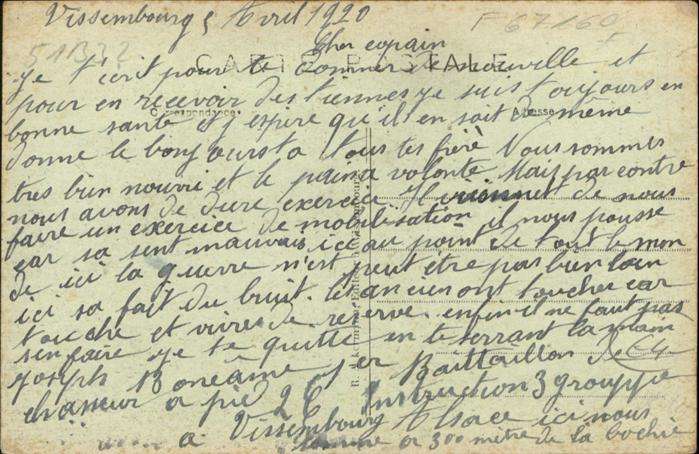 Vissembourg 5 Avril 1920
F 67160
51332
Cher copain
CARTE POSTALE
Je t'ecrit pour te donner de nouvelle et
pour en recevoir des tiennes je suis toujours en
Correspondance
Adresse
bonne santé et j espere qu'il en soit de même
donne le bonjours a tous tes frère Vous sommes
tres bien nourri et le pain a volonte. Mais par contre
nous avons de dure exercice. Il viennet de nous
faire un exercice de mobilisation il nous pousse
car sa sent mauvais ici au point de tout le mon
de ici la guerre n'est peut être pas bien loin
ici sa fait du bruit. les ancien ont toucher car
touche et vivres de reserve. enfin il ne faut pas
sen faire je te quitte en te serrant la main
Joseph Boneâme 1er Bataillon de
chasseur a pied 2 C Instruction 3 grouppe
a Vissembourg Alsace ici nous
somme a 300 mètre de la bochie